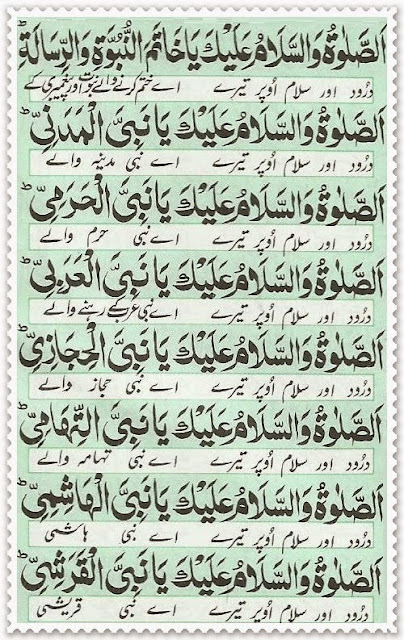 اَلصَّلٰوةُ وَالسَّلَامُ عَلَيْكَ يَا خَاتَمَ النُّبُوَّةِ وَالرِّسَالَةِ ط
درُود اور سلام اُوپر تیرے اے ختم کرنے والے نبوت اور پیغمبری کے
اَلصَّلٰوةُ وَالسَّلَامُ عَلَيْكَ يَا نَبِىَّ الْمَدَنِىِّ ط
درُود اور سلام اُوپر تیرے اے نبی مدینہ والے
اَلصَّلٰوةُ وَالسَّلَامُ عَلَيْكَ يَا نَبِىَّ الْحَرَمِىِّ ط
درُود اور سلام اُوپر تیرے اے نبی حرم والے
اَلصَّلٰوةُ وَالسَّلَامُ عَلَيْكَ يَا نَبِىَّ الْعَرَبِىِّ ط
درُود اور سلام اُوپر تیرے اے نبی عرب کے رہنے والے
اَلصَّلٰوةُ وَالسَّلَامُ عَلَيْكَ يَا نَبِىَّ الْحِجَازِىِّ ط
درُود اور سلام اُوپر تیرے اے نبی حجاز والے
اَلصَّلٰوةُ وَالسَّلَامُ عَلَيْكَ يَا نَبِىَّ التِّهَامِىِّ ط
درُود اور سلام اُوپر تیرے اے نبی تہامہ والے
اَلصَّلٰوةُ وَالسَّلَامُ عَلَيْكَ يَا نَبِىَّ الْهَاشِمِىِّ ط
درُود اور سلام اُوپر تیرے اے نبی ہاشمی
اَلصَّلٰوةُ وَالسَّلَامُ عَلَيْكَ يَا نَبِىَّ الْقَرَشِىِّ ط
درُود اور سلام اُوپر تیرے اے نبی قریشی